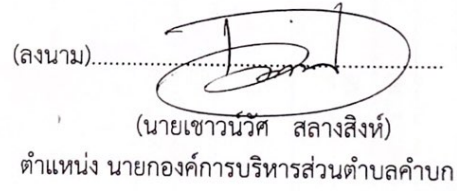 (ลงนาม)......................................................
(นายเชาวน์วัศ สลางสิงห์)
ตำแหน่ง นายกองค์การบริหารส่วนตำบลคำบก